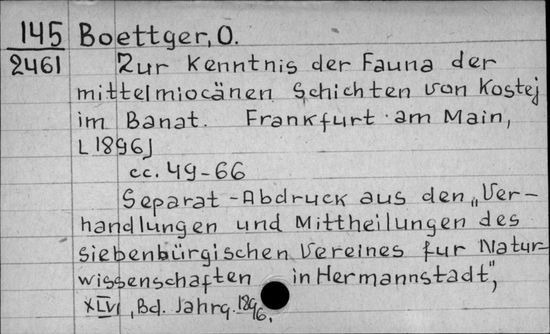 145 Boettger, O.
2461 Zur Kenntnis der Fauna der
mittelmiocänen Schichten von Kostej
im Banat. Frankfurt am Main,
[1896]
cc. 49-66
Separat-Abdruck aus den „Ver-
handlungen und Mittheilungen des
siebenbürgischen Vereines fur Natur-
wissenschaften in Hermannstadt",
XLVI, Bd. Jahrg. 1896.